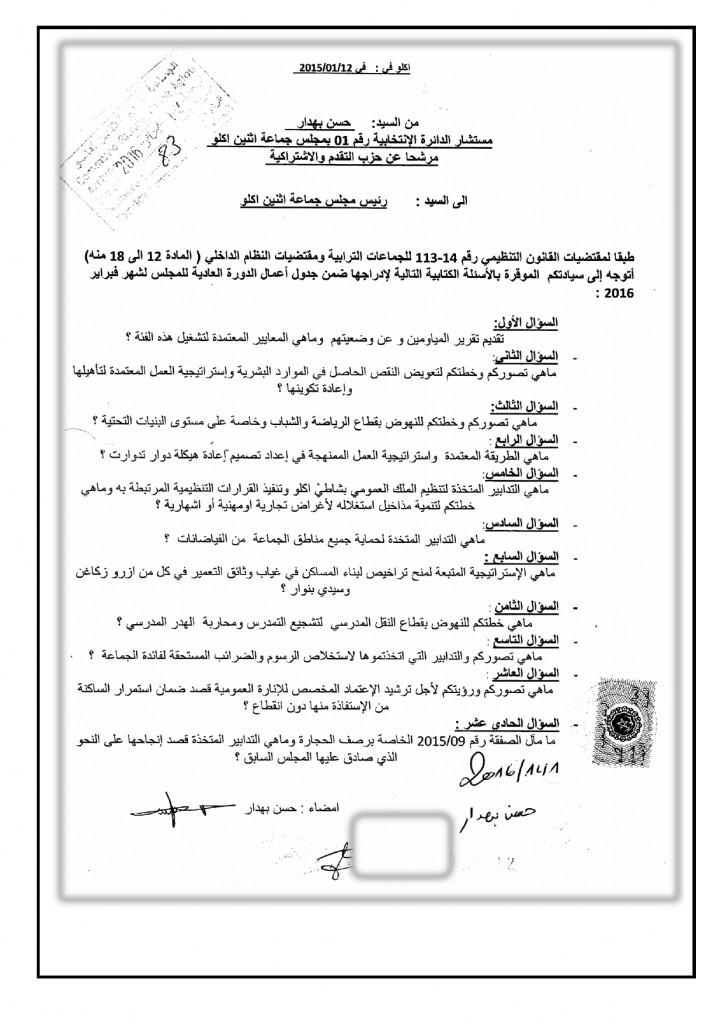 اكلو في : في 2015/01/12
من السيد: حسن بهدار
مستشار الدائرة الإنتخابية رقم 01 بمجلس جماعة اثنين اكلو
مرشحا عن حزب التقدم والاشتراكية
الى السيد : رئيس مجلس جماعة اثنين اكلو
طبقا لمقتضيات القانون التنظيمي رقم 14-113 للجماعات الترابية ومقتضيات النظام الداخلي ( المادة 12 الى 18 منه)
أتوجه إلى سيادتكم الموقرة بالأسئلة الكتابية التالية لإدراجها ضمن جدول أعمال الدورة العادية للمجلس لشهر فبراير
2016 :
السؤال الأول:
تقديم تقرير المياومين و عن وضعيتهم وماهي المعايير المعتمدة لتشغيل هذه الفئة ؟
- السؤال الثاني:
ماهي تصوركم وخطتكم لتعويض النقص الحاصل في الموارد البشرية وإستراتيجية العمل المعتمدة لتأهيلها
وإعادة تكوينها ؟
- السؤال الثالث:
ماهي تصوركم وخطتكم للنهوض بقطاع الرياضة والشباب وخاصة على مستوى البنيات التحتية ؟
- السؤال الرابع :
ماهي الطريقة المعتمدة واستراتيجية العمل الممنهجة في إعداد تصميم إعادة هيكلة دوار تدوارت ؟
- السؤال الخامس:
ماهي التدابير المتخذة لتنظيم الملك العمومي بشاطئ اكلو وتنفيذ القرارات التنظيمية المرتبطة به وماهي
خطتكم لتنمية مذاخيل استغلاله لأغراض تجارية اومهنية أو اشهارية ؟
- السؤال السادس:
ماهي التدابير المتخدة لحماية جميع مناطق الجماعة من الفياضانات ؟
- السؤال السابع :
ماهي الإستراتيجية المتبعة لمنح تراخيص لبناء المساكن في غياب وثائق التعمير في كل من ازرو زكاغن
وسيدي بنوار ؟
- السؤال الثامن :
ماهي خطتكم للنهوض بقطاع النقل المدرسي لتشجيع التمدرس ومحاربة الهدر المدرسي ؟
- السؤال التاسع :
ماهي تصوركم والتدابير التي اتخذتموها لاستخلاص الرسوم والضرائب المستحقة لفائدة الجماعة ؟
- السؤال العاشر :
ماهي تصوركم ورؤيتكم لأجل ترشيد الإعتماد المخصص للإنارة العمومية قصد ضمان استمرار الساكنة
من الإستفاذة منها دون انقطاع ؟
- السؤال الحادي عشر :
ما مآل الصفقة رقم 2015/09 الخاصة برصف الحجارة وماهي التدابير المتخذة قصد إنجاحها على النحو
الذي صادق عليها المجلس السابق ؟
امضاء : حسن بهدار
حسن بهدار
83